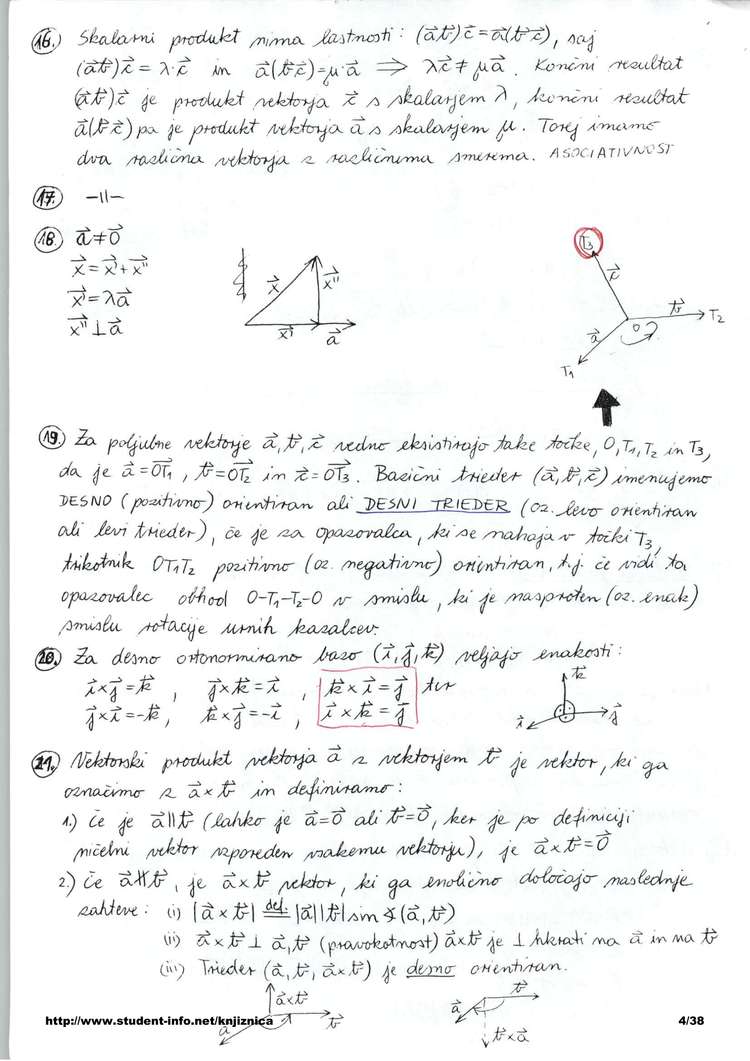 16.) Skalarni produkt nima lastnosti: (a⃗b⃗)c⃗ = a⃗(b⃗c⃗), saj
(a⃗b⃗)c⃗ = λ·c⃗ in a⃗(b⃗c⃗) = μ·a⃗ ⇒ λc⃗ ≠ μa⃗. Končni rezultat
(a⃗b⃗)c⃗ je produkt vektorja c⃗ s skalarjem λ, končni rezultat
a⃗(b⃗c⃗) pa je produkt vektorja a⃗ s skalarjem μ. Torej imamo
dva različna vektorja z različnima smerema. ASOCIATIVNOST
17. –11–
18. a⃗ ≠ 0⃗
x⃗ = x⃗' + x⃗''
x⃗' = λa⃗
x⃗'' ⊥ a⃗
x⃗ x⃗'' x⃗' a⃗
T₃ c⃗ b⃗ T₂ O a⃗ T₁
19. Za poljubne vektorje a⃗, b⃗, c⃗ vedno eksistirajo take točke, O, T₁, T₂ in T₃,
da je a⃗ = OT₁, b⃗ = OT₂ in c⃗ = OT₃. Bazični trieder (a⃗, b⃗, c⃗) imenujemo
DESNO (pozitivno) orientiran ali DESNI TRIEDER (oz. levo orientiran
ali levi trieder), če je za opazovalca, ki se nahaja v točki T₃,
trikotnik OT₁T₂ pozitivno (oz. negativno) orientiran, t.j. če vidi ta
opazovalec obhod O-T₁-T₂-O v smislu, ki je nasproten (oz. enak)
smislu rotacije urnih kazalcev.
20. Za desno ortonormirano bazo (i⃗, j⃗, k⃗) veljajo enakosti:
i⃗ × j⃗ = k⃗, j⃗ × k⃗ = i⃗, k⃗ × i⃗ = j⃗ ter
j⃗ × i⃗ = -k⃗, k⃗ × j⃗ = -i⃗, i⃗ × k⃗ = j⃗
k⃗ i⃗ j⃗
21. Vektorski produkt vektorja a⃗ z vektorjem b⃗ je vektor, ki ga
označimo z a⃗ × b⃗ in definiramo:
1.) Če je a⃗ ∥ b⃗ (lahko je a⃗ = 0⃗ ali b⃗ = 0⃗, ker je po definiciji
ničelni vektor vzporeden vsakemu vektorju), je a⃗ × b⃗ = 0⃗
2.) Če a⃗ ∦ b⃗, je a⃗ × b⃗ vektor, ki ga enolično določajo naslednje
zahteve: (i) |a⃗ × b⃗| =def. |a⃗||b⃗| sin ∢(a⃗, b⃗)
(ii) a⃗ × b⃗ ⊥ a⃗, b⃗ (pravokotnost) a⃗ × b⃗ je ⊥ hkrati na a⃗ in na b⃗
(iii) Trieder (a⃗, b⃗, a⃗ × b⃗) je desno orientiran.
a⃗ × b⃗ a⃗ b⃗
b⃗ a⃗ b⃗ × a⃗
http://www.student-info.net/knjiznica 4/38